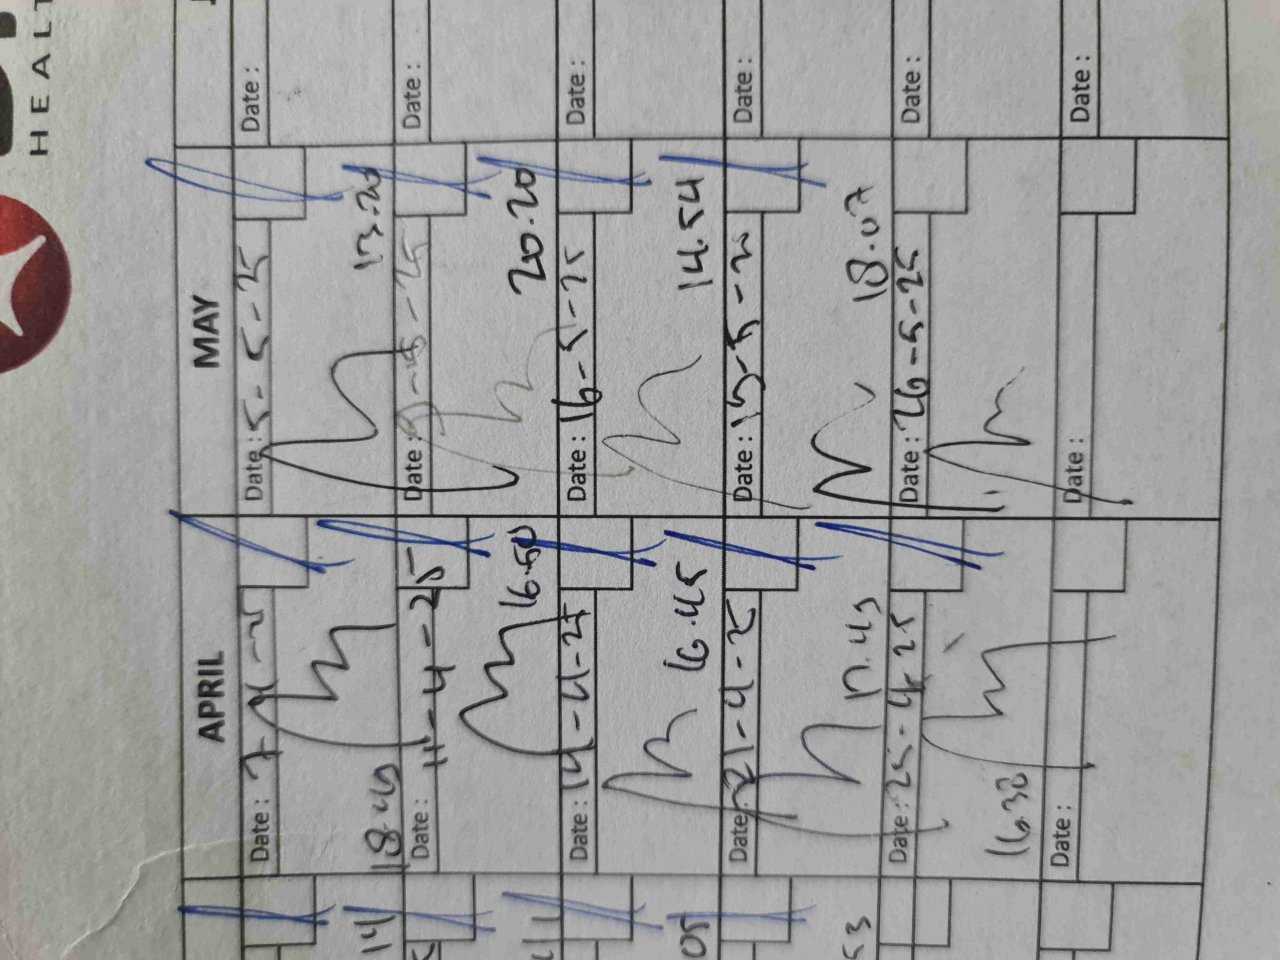 HEALT
APRIL
MAY
Date : 7-4-25
Date : 5-5-25
Date :
18.45
13.20
Date : 11-4-25
Date : 9-5-25
Date :
16.50
20.20
Date : 14-4-25
Date : 16-5-25
Date :
16.45
14.54
Date : 21-4-25
Date : 19-5-25
Date :
17.45
18.07
Date : 25-4-25
Date : 26-5-25
Date :
16.30
Date :
Date :
Date :
14
05
53